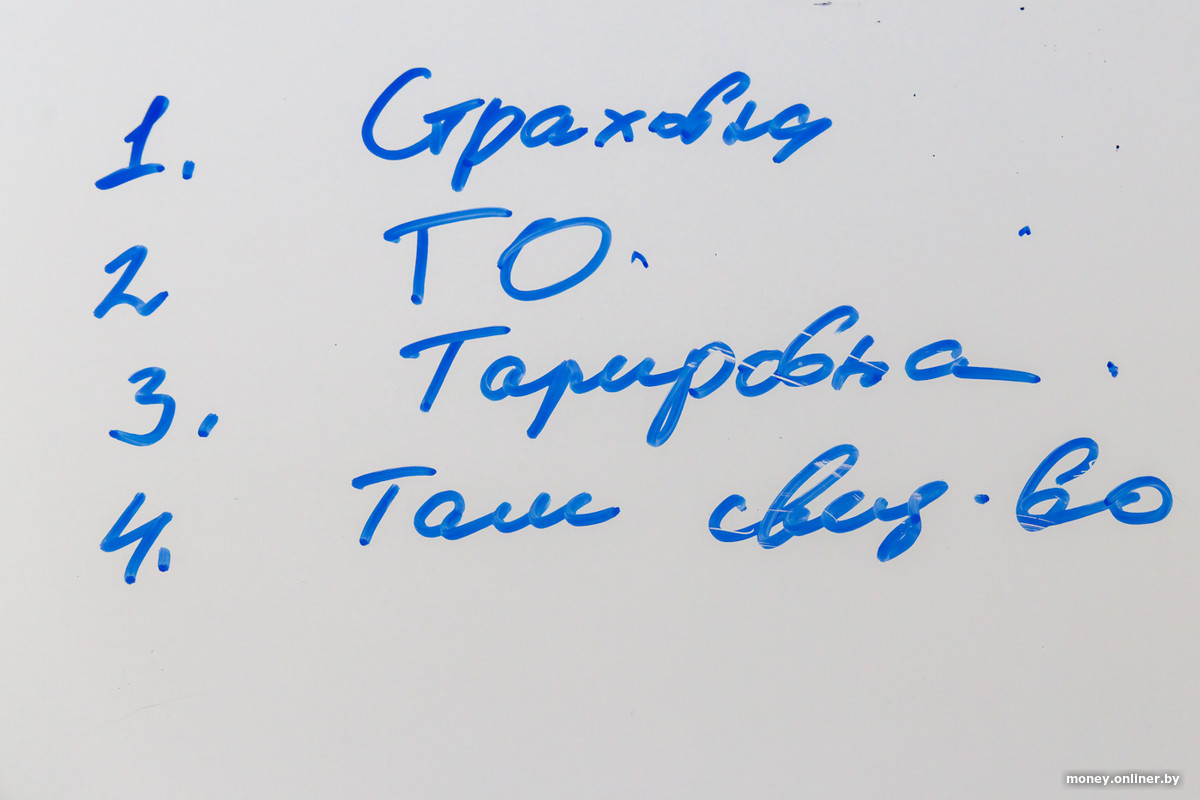 1. Страховка
2 ТО.
3. Тарировка
4. Там свид-во
money.onliner.by